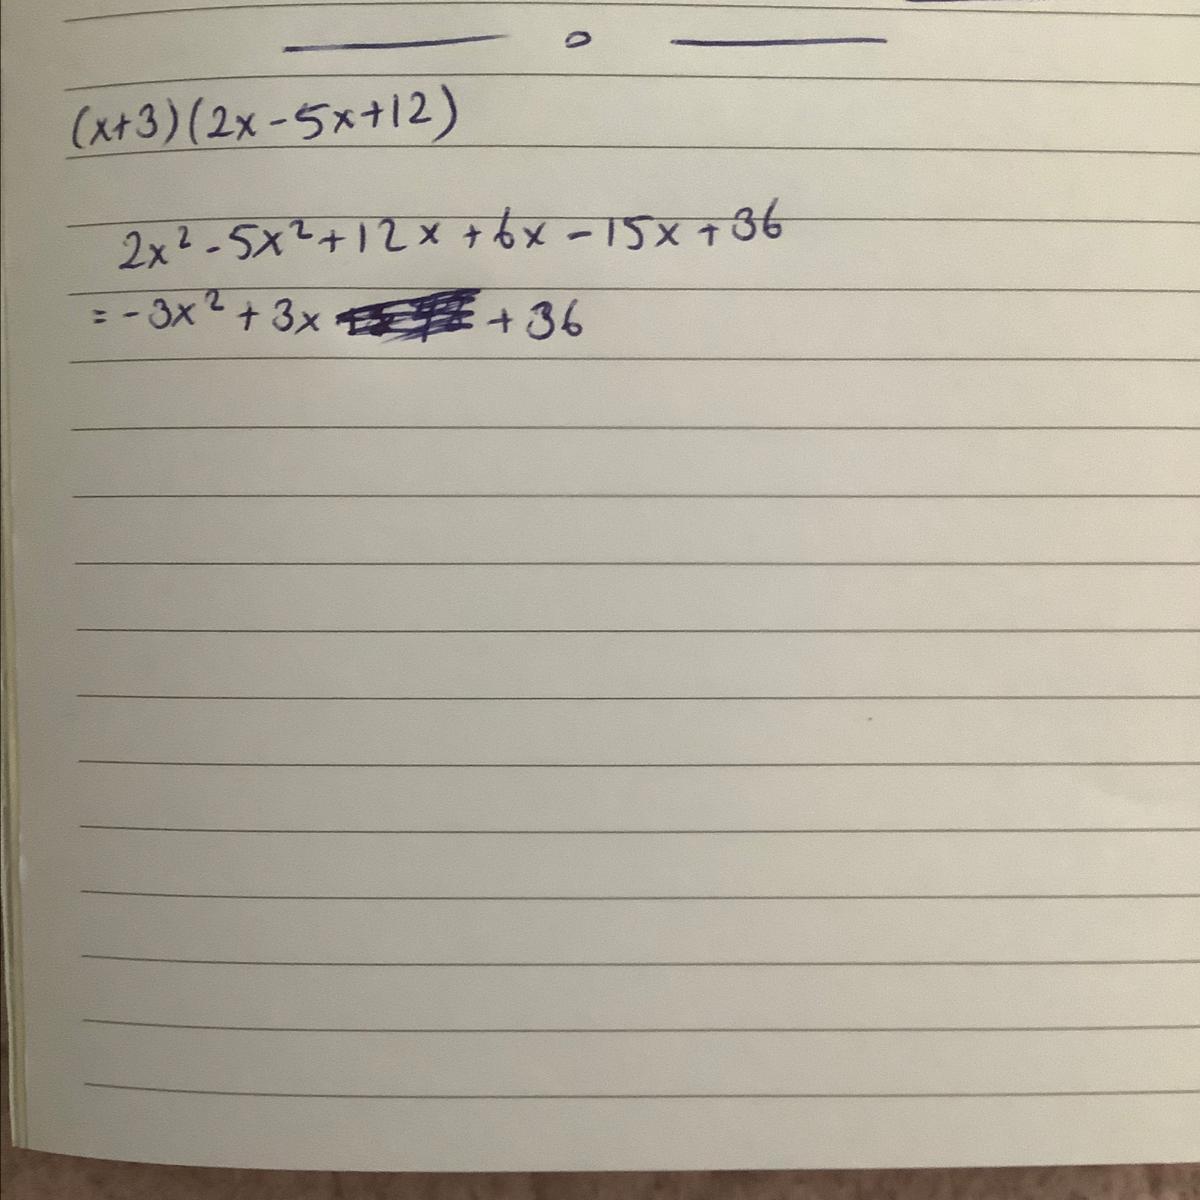 (x+3)(2x-5x+12)
2x²-5x²+12x+6x-15x+36
=-3x²+3x +36